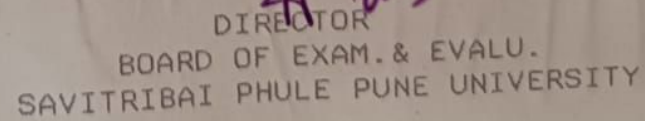 DIRECTOR
BOARD OF EXAM.& EVALU.
SAVITRIBAI PHULE PUNE UNIVERSITY